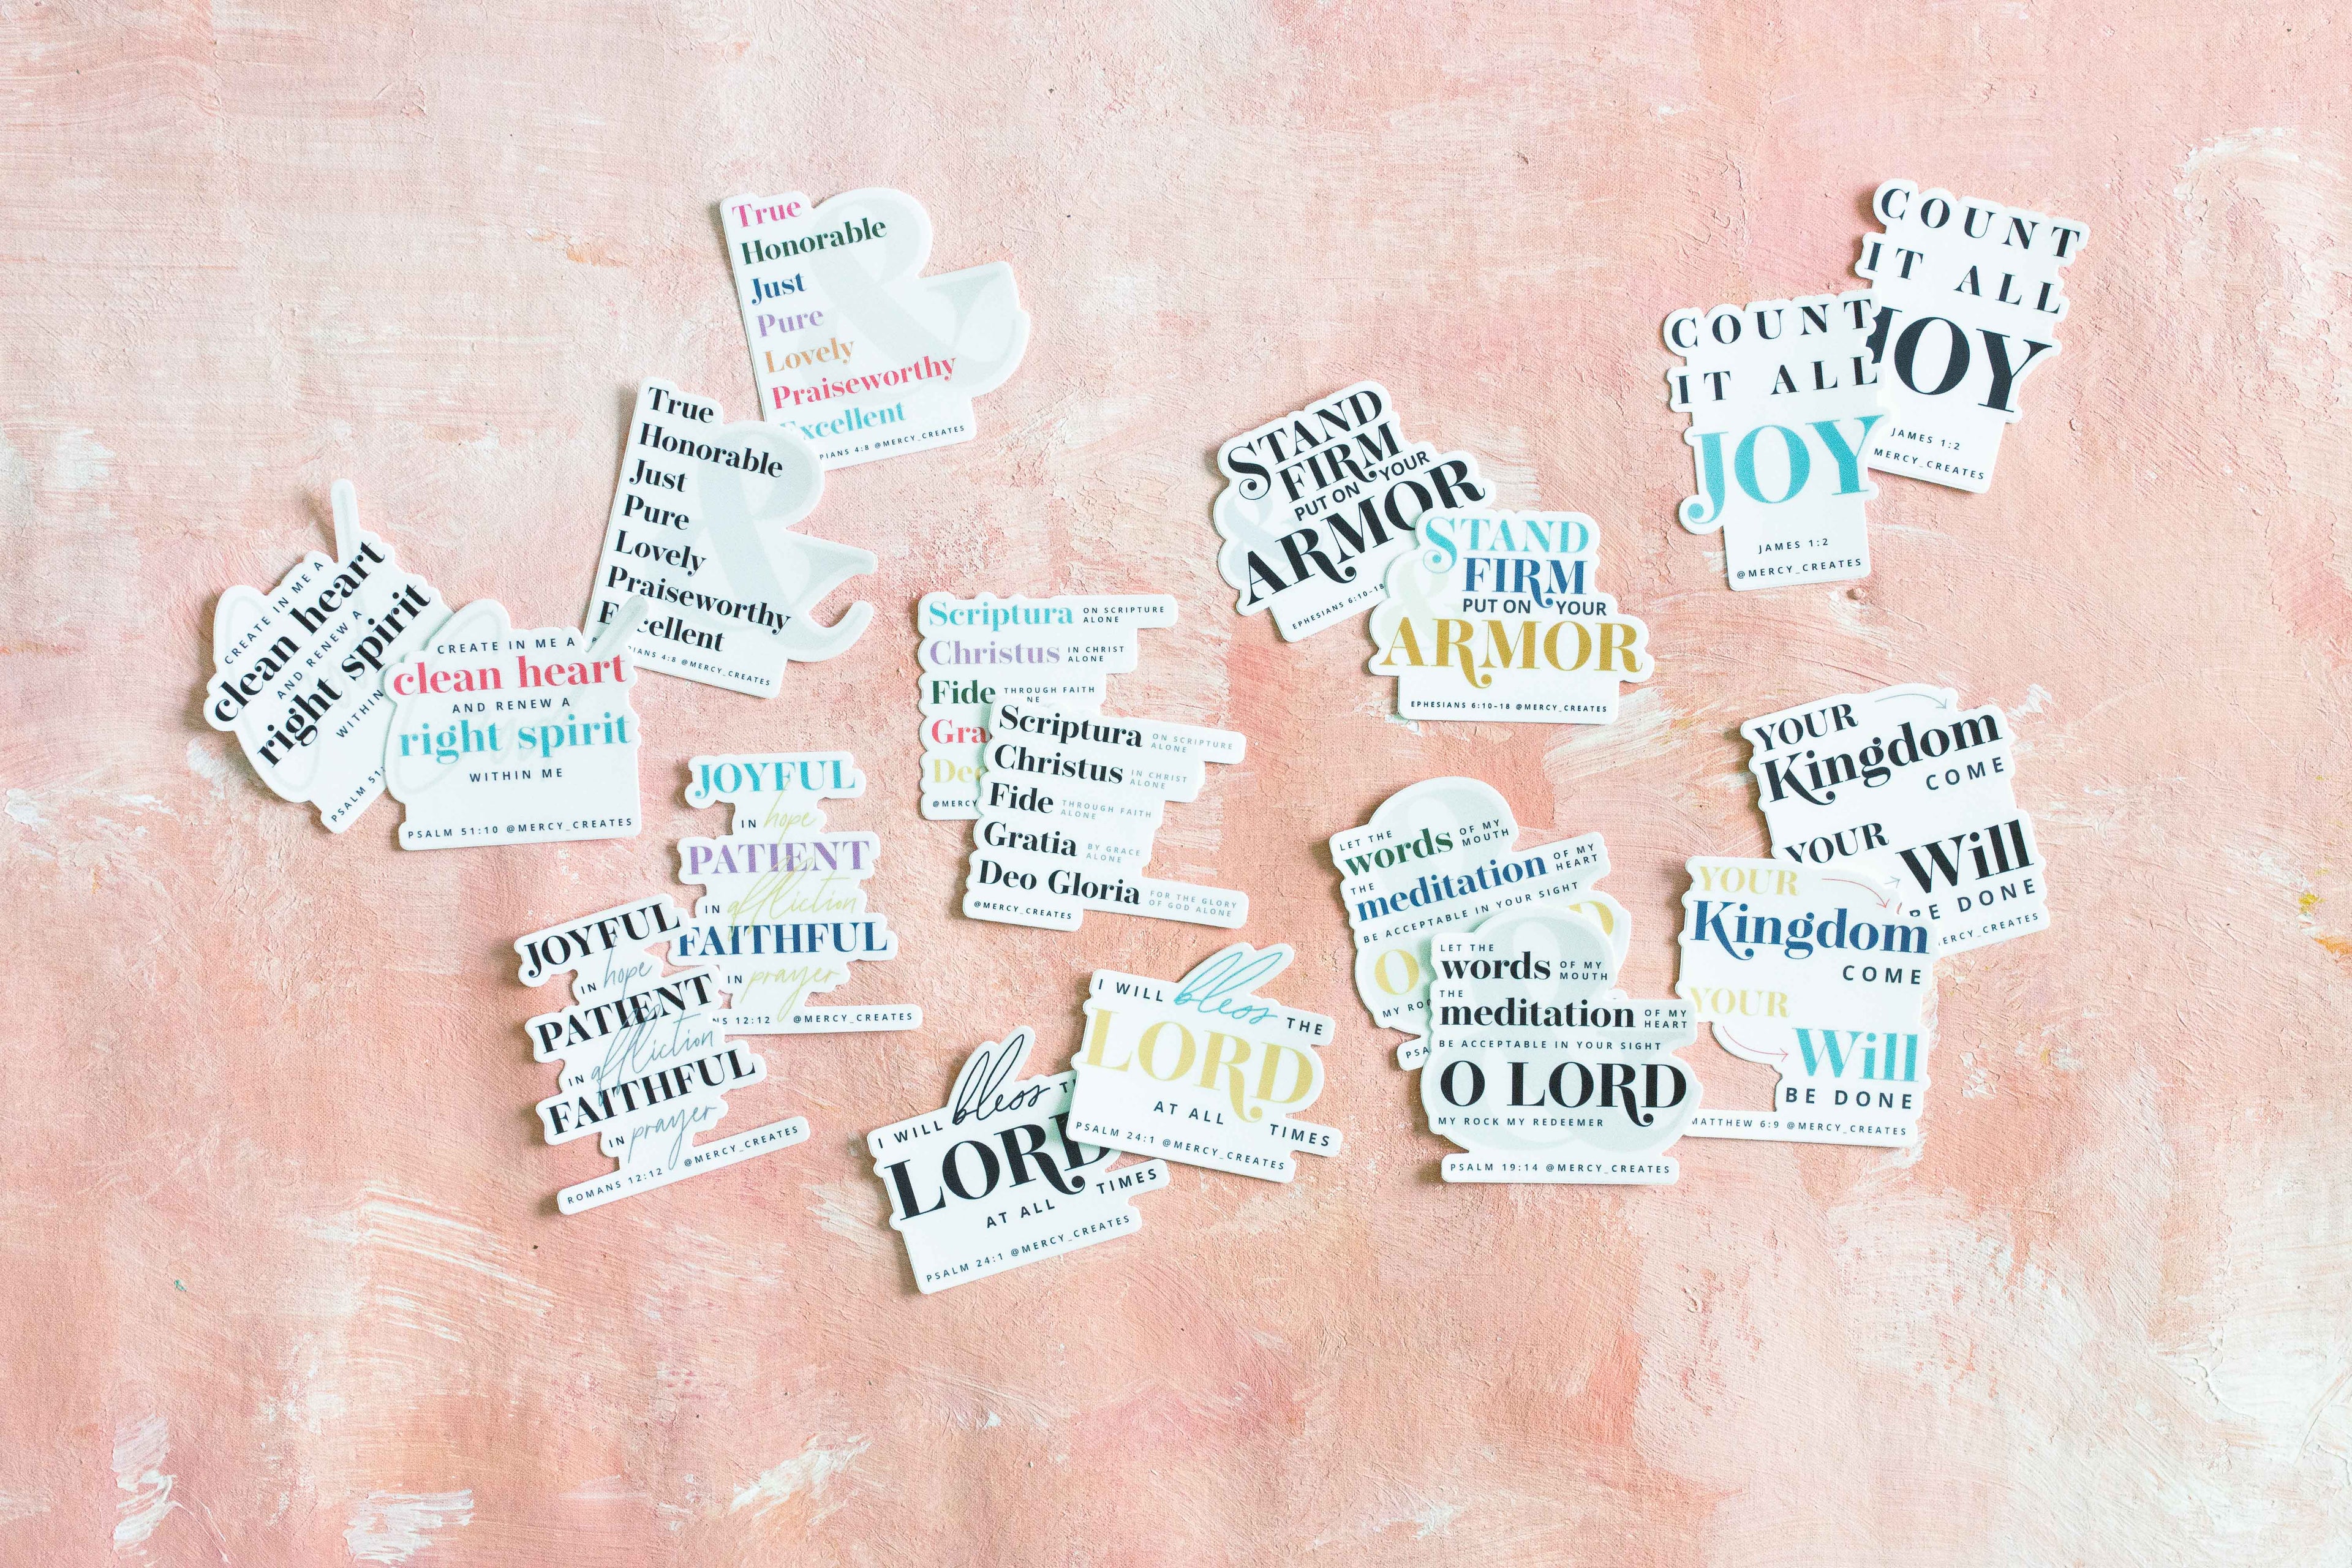 True
Honorable
Just
Pure
Lovely
Praiseworthy
Excellent
PIANS 4:8 @MERCY_CREATES
True
Honorable
Just
Pure
Lovely
Praiseworthy
E cellent
IANS 4:8 @MERCY_CREATES
CREATE IN ME A
clean heart
AND RENEW A
right spirit
WITHIN
PSALM 51:
CREATE IN ME A
clean heart
AND RENEW A
right spirit
WITHIN ME
PSALM 51:10 @MERCY_CREATES
JOYFUL
IN hope
PATIENT
IN affliction
FAITHFUL
IN prayer
NS 12:12 @MERCY_CREATES
JOYFUL
IN hope
PATIENT
IN affliction
FAITHFUL
IN prayer
ROMANS 12:12 @MERCY_CREATES
Scriptura ON SCRIPTURE
ALONE
Christus IN CHRIST
ALONE
Fide THROUGH FAITH
NE
Gra
Deo
@MERCY
Scriptura ON SCRIPTURE
ALONE
Christus IN CHRIST
ALONE
Fide THROUGH FAITH
ALONE
Gratia BY GRACE
ALONE
Deo Gloria FOR THE GLORY
OF GOD ALONE
@MERCY_CREATES
I WILL bless THE
LORD
AT ALL TIMES
PSALM 24:1 @MERCY_CREATES
I WILL bless T
LORD
AT ALL TIMES
PSALM 24:1 @MERCY_CREATES
STAND
FIRM
PUT ON YOUR
ARMOR
EPHESIANS 6:10-18
STAND
FIRM
PUT ON YOUR
ARMOR
EPHESIANS 6:10-18 @MERCY_CREATES
COUNT
IT ALL
JOY
JAMES 1:2
MERCY_CREATES
COUNT
IT ALL
JOY
JAMES 1:2
@MERCY_CREATES
LET THE
words OF MY
MOUTH
THE
meditation OF MY
HEART
BE ACCEPTABLE IN YOUR SIGHT
O D
MY ROC
PSA
LET THE
words OF MY
MOUTH
THE
meditation OF MY
HEART
BE ACCEPTABLE IN YOUR SIGHT
O LORD
MY ROCK MY REDEEMER
PSALM 19:14 @MERCY_CREATES
YOUR
Kingdom
COME
YOUR
Will
BE DONE
ERCY_CREATES
YOUR
Kingdom
COME
YOUR
Will
BE DONE
MATTHEW 6:9 @MERCY_CREATES